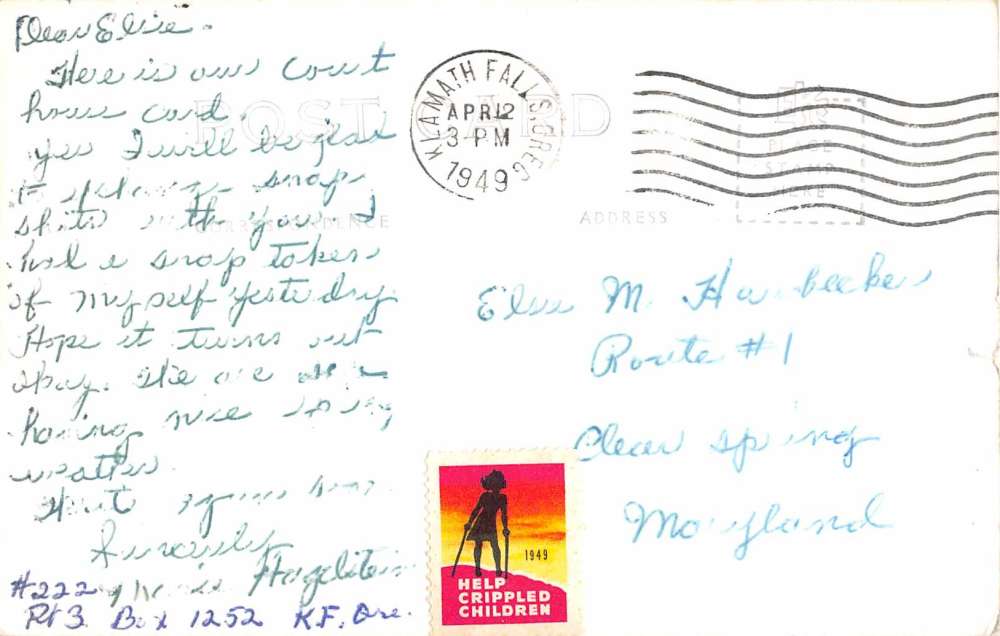 Dear Elsie.
Here is our Court
house card.
yes I will be glad
to exchange snap
shots with you. I
had a snap taken
of my self yesterday
Hope it turns out
okay. We are
having nice spring
weather.
Write again soon
Sincerely
#222
Rt 3 Box 1252 K.F. Ore.
POST CARD
CORRESPONDENCE
ADDRESS
KLAMATH FALLS, OREG
APR 12
3-PM
1949
PLACE
STAMP
HERE
Elsie M.
Route #1
Clear spring
Maryland
1949
HELP
CRIPPLED
CHILDREN